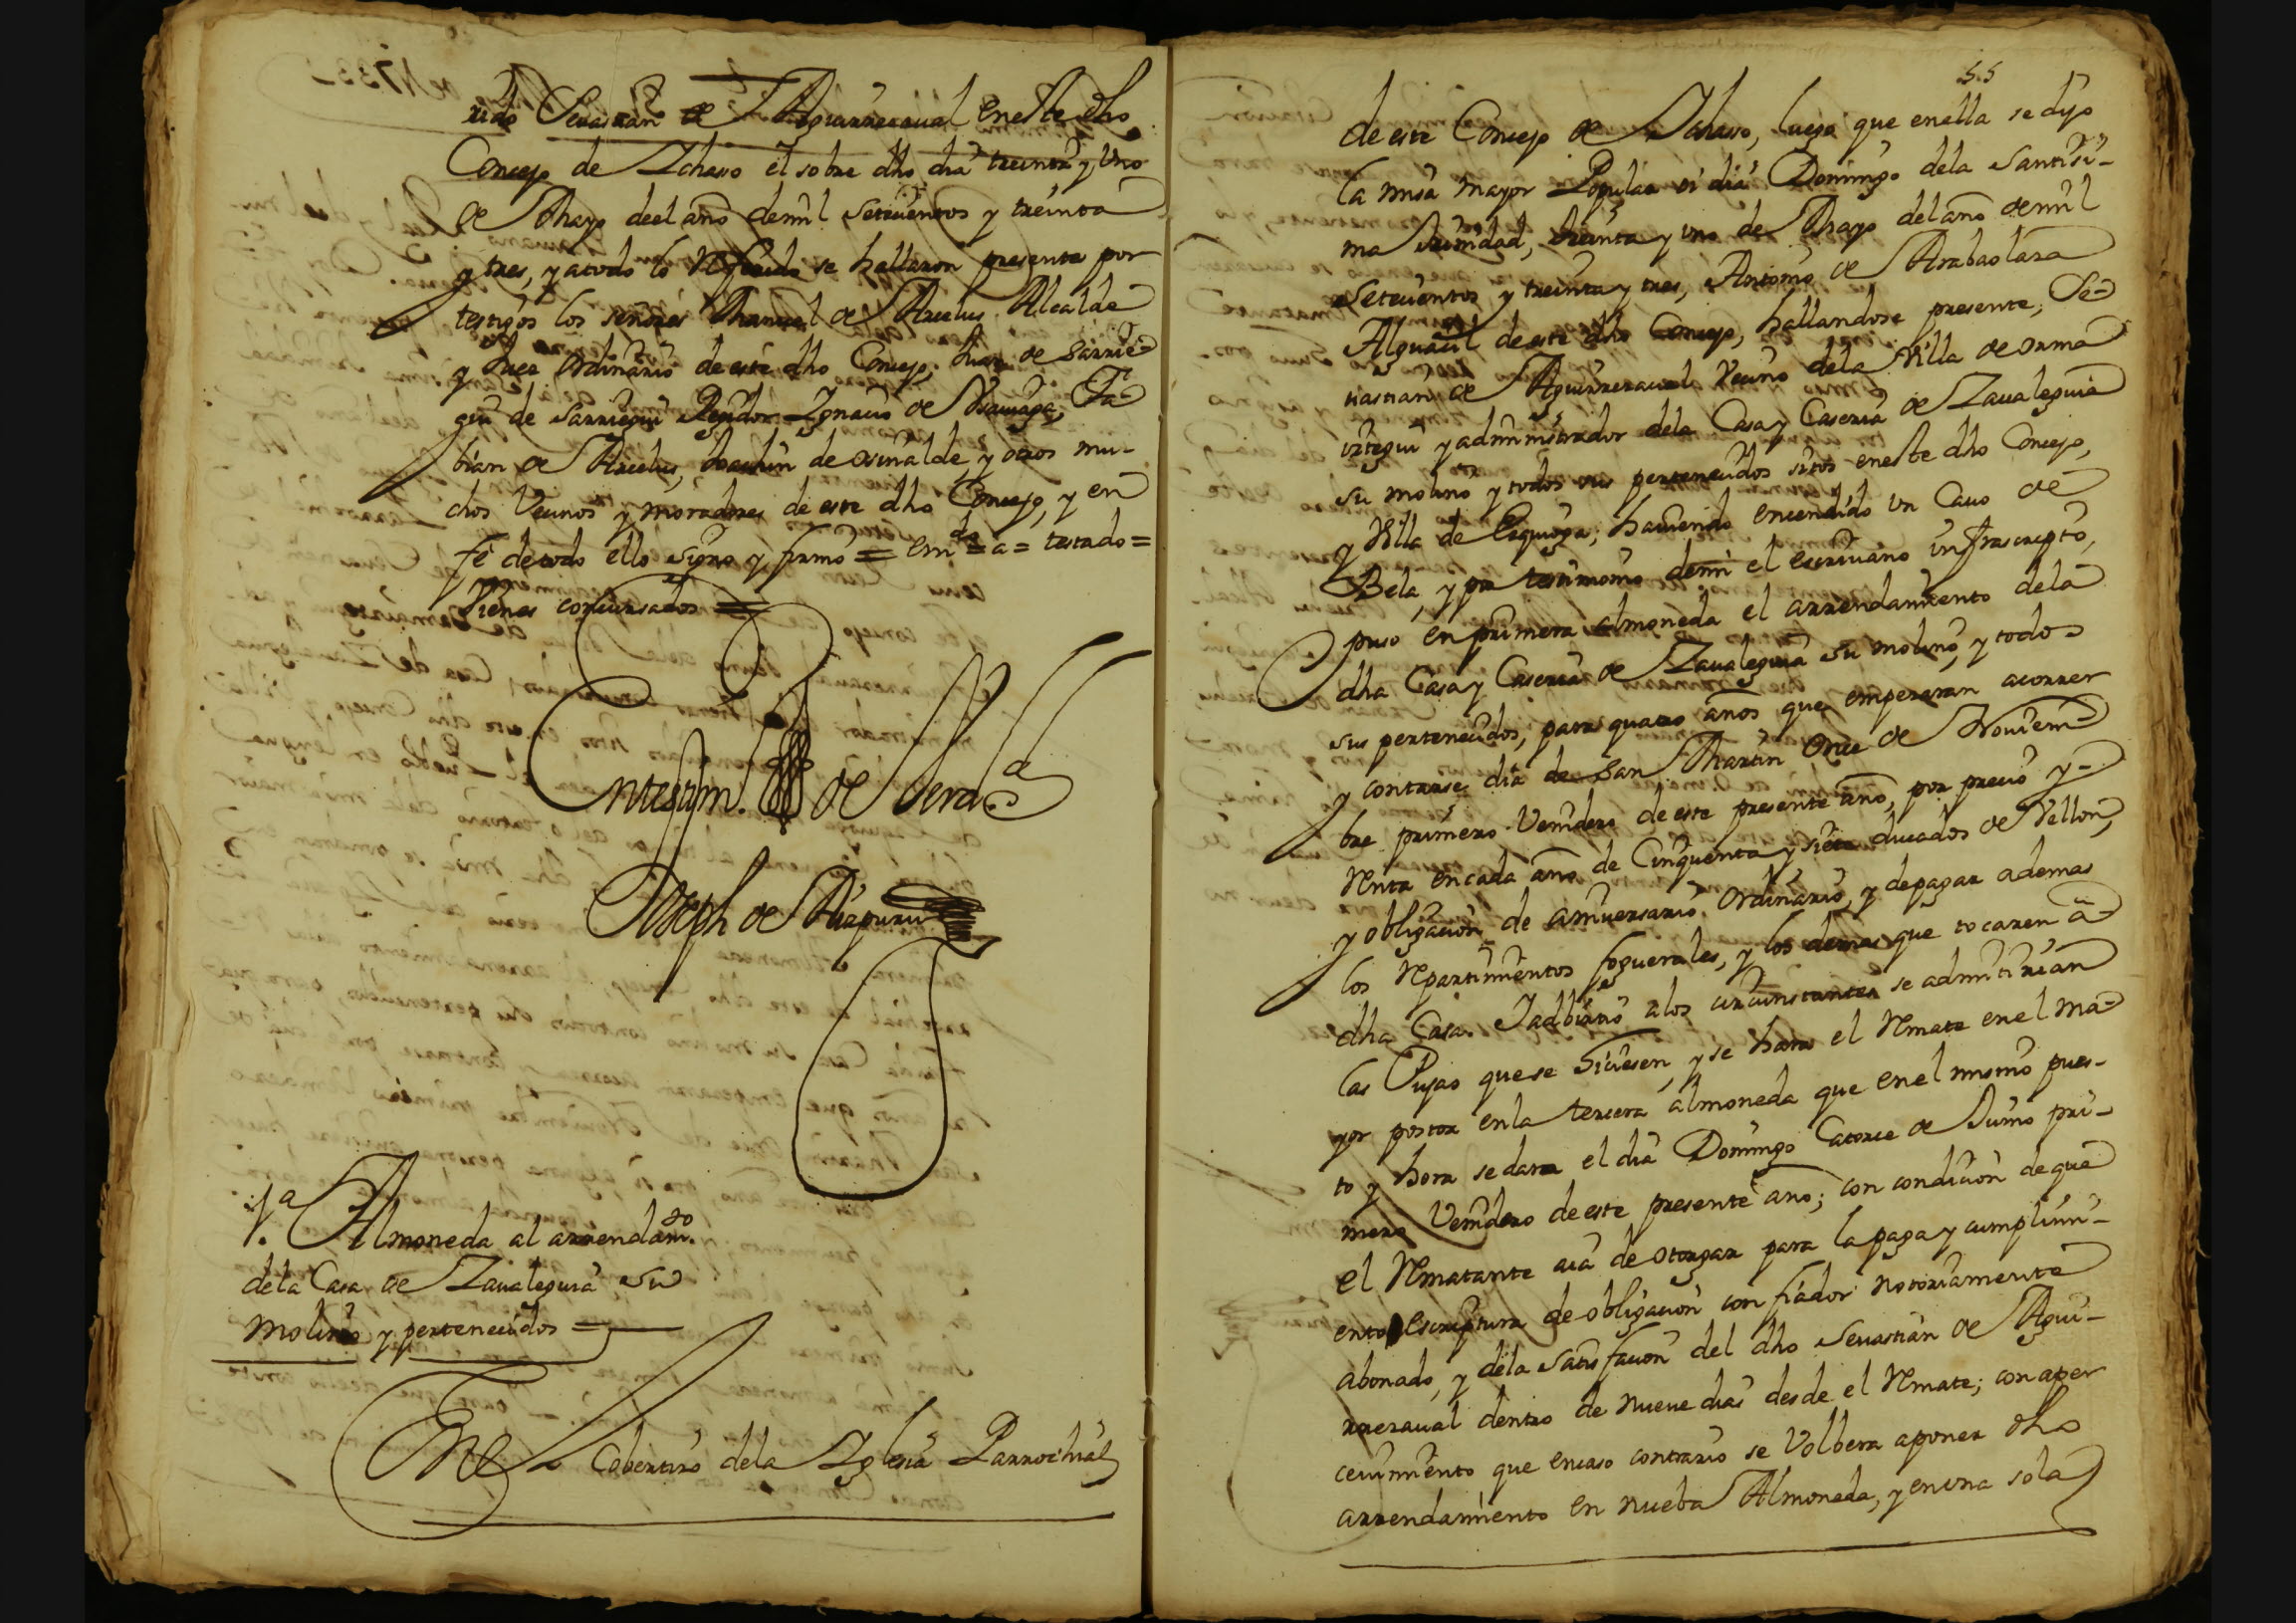 rido Sevastian de Aguirrezaual eneste dho
Concejo de Ichaso el sobre dho dia treinta y Uno
de Mayo deel año demil Setecientos y treinta
y tres, y atodo lo Referido se hallaron presente por
testigos los señores Manuel de Arcelus Alcalde
y Juez ordinario de este dho Concejo, Juan de Sarrie-
gui de Sarriegui Regidor Ignacio de Fa-
bian de Arcelus, Joachin de osinalde, y otros mu-
chos Vecinos y moradores de este dho Concejo, y en
fe detodo ello signo y firmo = em.do = a = testado =
Vienes concursados =
Entestim.o de Verd.d
Joseph de Aizpuru
1.a Almoneda al arrendam.to
dela Casa de Zaualeguia su
Molino y pertenecidos =
Ene Cobertizo dela Iglesia Parrochial
55
de este Concejo de Ichaso, luego que enella se dijo
la misa mayor Popular oi dia Domingo dela Santisi-
ma trinidad, treinta y uno de Mayo del año demil
Setecientos y treinta y tres, Antonio de Arabaolaza
Alguacil de este dho Concejo, hallandose presente, Se-
uastian de Aguirrezaual Vecino dela Villa de orma
iztegui y administrador dela Casa y Caseria de Zaualeguia
su molino y todos sus pertenecidos sitos eneste dho Concejo,
y Villa de Ezquioga; haviendo encendido un Cauo de
Bela, y por testimonio demi el escriuano infrascripto,
puso en primera almoneda el arrendamiento dela
dha Casa y Caseria de Zaualeguia su molino, y todos
sus pertenecidos, para quatro años que empezaran acorrer
y contarse dia de San Martin Once de Noviem-
bre primero Venidero de este presente año, por precio y-
Renta encada año de Cinquenta y siete ducados de Vellon,
y obligacion de aniuersario Ordinario, y depagar ademas
los Repartimientos foguerales, y los demas que tocaren a-
dha Casa. Y adbirtio alos circunstantes se admitirian
las Pujas que se hiciesen, y se hara el Remate enel ma-
yor postor enla tercera almoneda que enel mismo pues-
to y hora se dara el dia Domingo Catorce de Junio pri-
mero Venidero de este presente año; con condicion de que
el Rematante aia de otorgar para la paga y cumplimi-
ento escriptura de obligacion con fiador notoriamente
abonado, y dela satisfacion del dho Seuastian de Agui-
rrezaual dentro de nueve dias desde el Remate; con aper
ceuimiento que encaso contrario se Volbera aponer dho
arrendamiento en nueba Almoneda, y en una sola